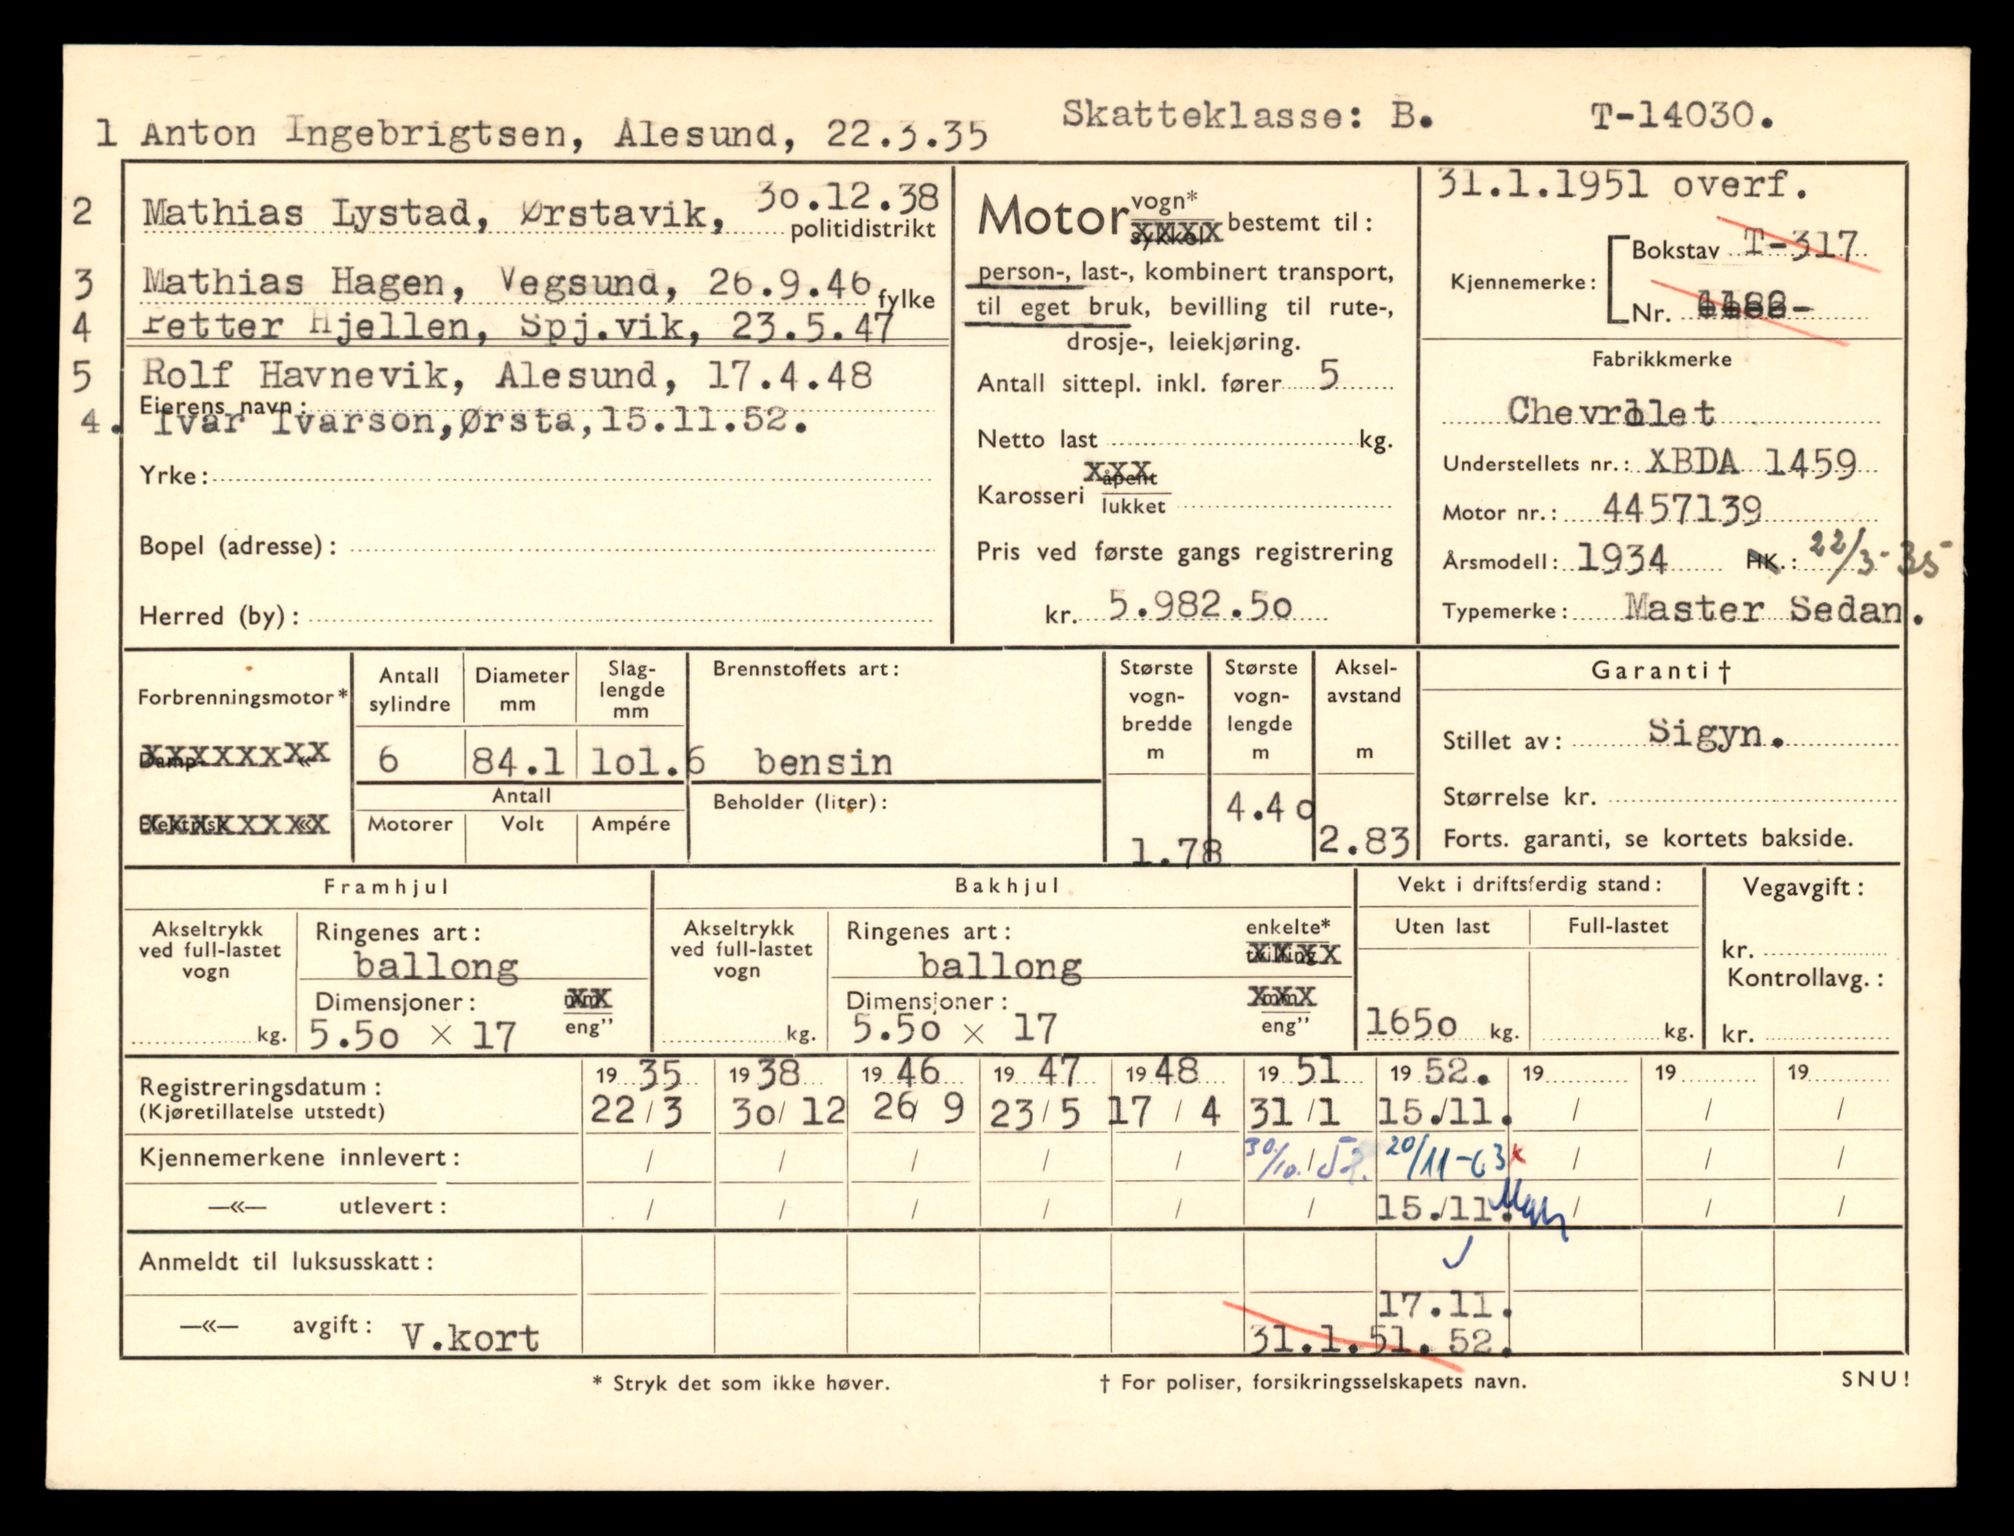 Skatteklasse: B. T-14030.
1 Anton Ingebrigtsen, Ålesund, 22.3.35
2 Mathias Lystad, Ørstavik, 30.12.38
politidistrikt
3 Mathias Hagen, Vegsund, 26.9.46
fylke
4 Petter Hjellen, Spj.vik, 23.5.47
5 Rolf Havnevik, Ålesund, 17.4.48
Eierens navn:
4. Ivar Ivarson, Ørsta, 15.11.52.
Yrke:
Bopel (adresse):
Herred (by):
Motor vogn* bestemt til:
sykkel
person-, last-, kombinert transport,
til eget bruk, bevilling til rute-,
drosje-, leiekjøring.
Antall sittepl. inkl. fører 5
Netto last kg.
XXX
Karosseri åpent
lukket
Pris ved første gangs registrering
kr. 5.982.50
31.1.1951 overf.
Kjennemerke: Bokstav T-317
Nr.
Fabrikkmerke
Chevrolet
Understellets nr.: XBDA 1459
Motor nr.: 4457139
Årsmodell: 1934 HK.: 22/3-35
Typemerke: Master Sedan.
Forbrenningsmotor*
Damp «
Elektrisk «
Antall sylindre
Diameter mm
Slag-lengde mm
6 84.1 101.6
Antall
Motorer Volt Ampére
Brennstoffets art:
bensin
Beholder (liter):
Største vogn-bredde m
1.78
Største vogn-lengde m
4.40
Aksel-avstand m
2.83
Garanti †
Stillet av: Sigyn.
Størrelse kr.
Forts. garanti, se kortets bakside.
Framhjul
Akseltrykk ved full-lastet vogn
kg.
Ringenes art:
ballong
Dimensjoner: mm
eng"
5.50 x 17
Bakhjul
Akseltrykk ved full-lastet vogn
kg.
Ringenes art: enkelte*
tvilling
ballong
Dimensjoner: mm
eng"
5.50 x 17
Vekt i driftsferdig stand:
Uten last Full-lastet
1650 kg. kg.
Vegavgift:
kr.
Kontrollavg.:
kr.
Registreringsdatum: 1935 1938 1946 1947 1948 1951 1952. 19 19 19
(Kjøretillatelse utstedt) 22/3 30/12 26/9 23/5 17/4 31/1 15./11. / / /
Kjennemerkene innlevert: / / / / / 30/10. 52. 20/11-63 x / / /
—«— utlevert: / / / / / / 15./11. / / /
Anmeldt til luksusskatt:
17.11.
—«— avgift: V.kort 31.1.51. 52.
* Stryk det som ikke høver. † For poliser, forsikringsselskapets navn. SNU!